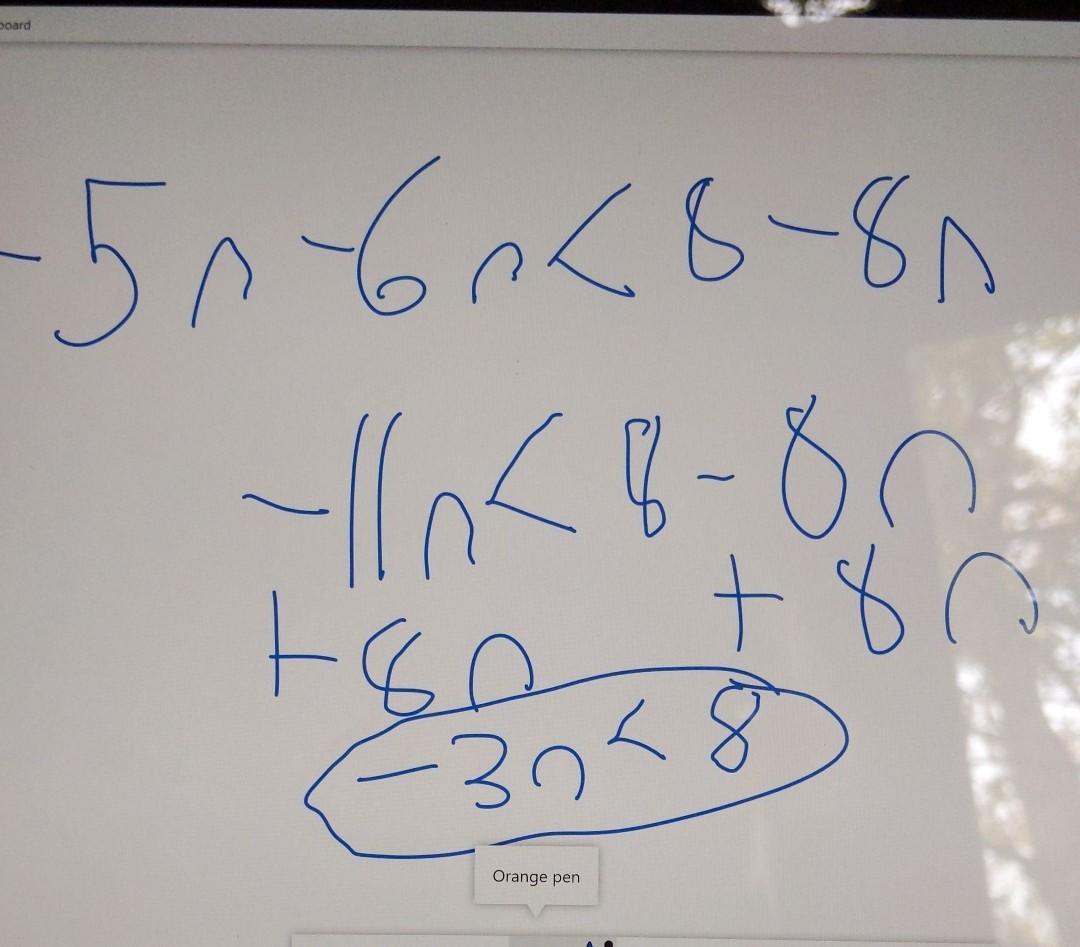 board
-5n-6n<8-8n
-11n<8-8n
+8n +8n
-3n<8
Orange pen